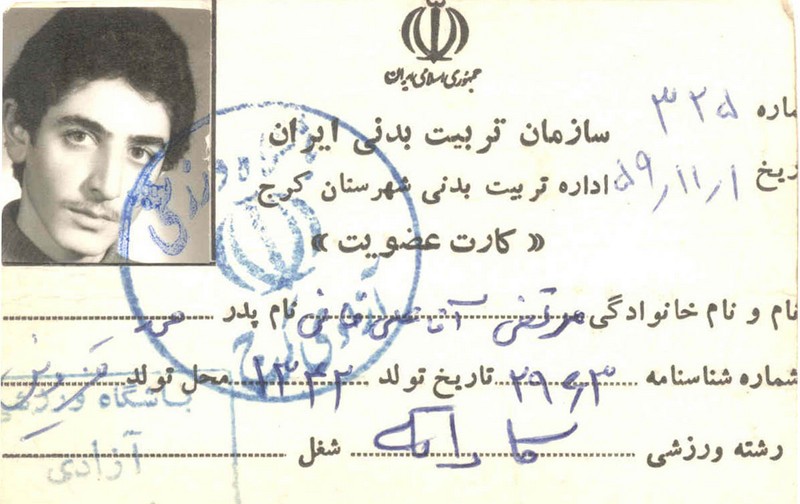 جمهوری اسلامی ایران
ماره ۳۲۵
سازمان تربیت بدنی ایران
ریخ ۵۹/۱۱/۱
اداره تربیت بدنی شهرستان کرج
« کارت عضویت »
نام و نام خانوادگی مرتضی نام پدر
شماره شناسنامه تاریخ تولد ۱۳۴۲ محل تولد قزوین
رشته ورزشی کاراته شغل
باشگاه ورزشی
آزادی